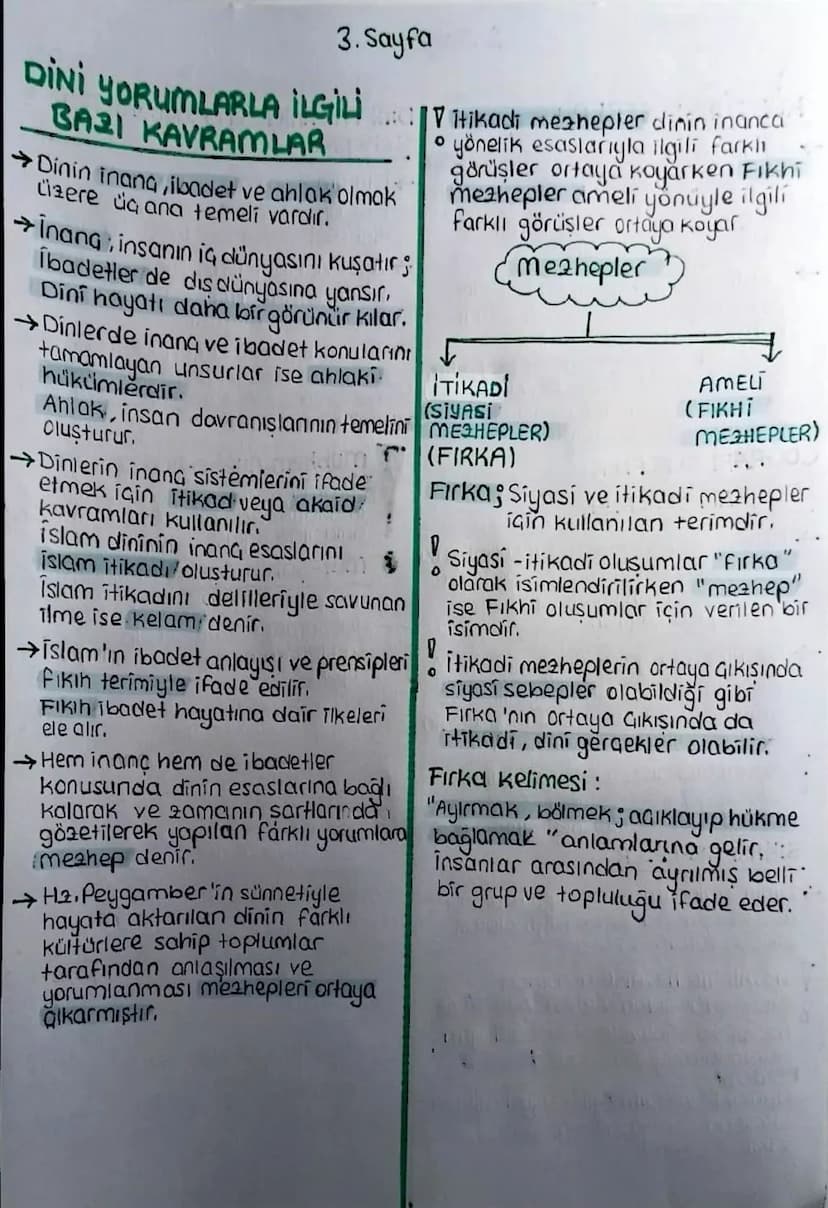 3. Sayfa
DİNİ YORUMLARLA İLGİLİ
BAZI KAVRAMLAR
→ Dinin inanç, ibadet ve ahlak olmak
üzere üç ana temeli vardır.
→ İnanç; insanın iç dünyasını kuşatır;
İbadetler de dış dünyasına yansır.
Dinî hayatı daha bir görünür kılar.
→ Dinlerde inanç ve ibadet konularını
tamamlayan unsurlar ise ahlaki
hükümlerdir.
Ahlak, insan davranışlarının temelini
oluşturur.
→ Dinlerin inanç sistemlerini ifade
etmek için itikad veya akaid
kavramları kullanılır.
İslam dininin inanç esaslarını
islam itikadı oluşturur.
İslam itikadını delilleriyle savunan
ilme ise kelam denir.
→ İslam'ın ibadet anlayışı ve prensipleri
fıkıh terimiyle ifade edilir.
Fıkıh ibadet hayatına dair ilkeleri
ele alır.
→ Hem inanç hem de ibadetler
konusunda dinin esaslarına bağlı
kalarak ve zamanın şartlarında
gözetilerek yapılan farklı yorumlara
mezhep denir.
→ Hz. Peygamber'in sünnetiyle
hayata aktarılan dinin farklı
kültürlere sahip toplumlar
tarafından anlaşılması ve
yorumlanması mezhepleri ortaya
çıkarmıştır.
! İtikadi mezhepler dinin inanca
yönelik esaslarıyla ilgili farklı
görüşler ortaya koyarken Fıkhi
mezhepler ameli yönüyle ilgili
farklı görüşler ortaya koyar
Mezhepler
İTİKADİ
(SİYASİ
MEZHEPLER)
(FIRKA)
AMELİ
(FIKHİ
MEZHEPLER)
Fırka; Siyasi ve itikadi mezhepler
için kullanılan terimdir.
! Siyasi-itikadi oluşumlar "fırka"
olarak isimlendirilirken "mezhep"
ise Fıkhi oluşumlar için verilen bir
isimdir.
! İtikadi mezheplerin ortaya çıkışında
siyasi sebepler olabildiği gibi
Fırka'nın ortaya çıkışında da
itikadi, dini gerçekler olabilir.
Fırka kelimesi:
"Ayırmak, bölmek; açıklayıp hükme
bağlamak" anlamlarına gelir.
İnsanlar arasından ayrılmış belli
bir grup ve topluluğu ifade eder.